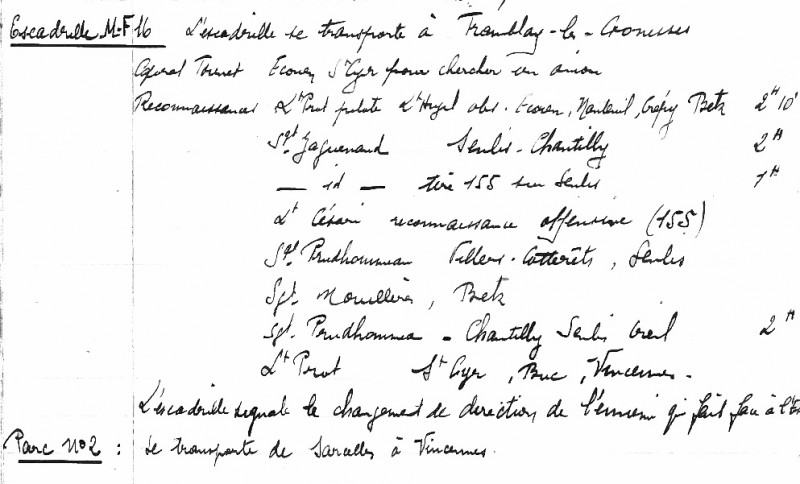 Escadrille M-F 16 L'escadrille se transporte à Tremblay-les-Gonesses
Caporal Thenet Ecouen St Cyr pour chercher un avion
Reconnaissances Lt Prot pilote Lt Hugel obs. Ecouen, Nanteuil, Crépy Betz 2H 10'
Sgt Jaguenaud Senlis-Chantilly 2H
— id — tire 155 sur Senlis 1H
Lt Césari reconnaissance offensive (155)
Sgt Prudhommeau Villers-Cotterêts, Senlis
Sgt. Mouillères, Betz
Sgt. Prudhommeau - Chantilly Senlis Creil 2H
Lt Prot St Cyr, Buc, Vincennes.
L'escadrille signale le changement de direction de l'ennemi qui fait face à l'Est
Parc No 2 : se transporte de Sarcelles à Vincennes.